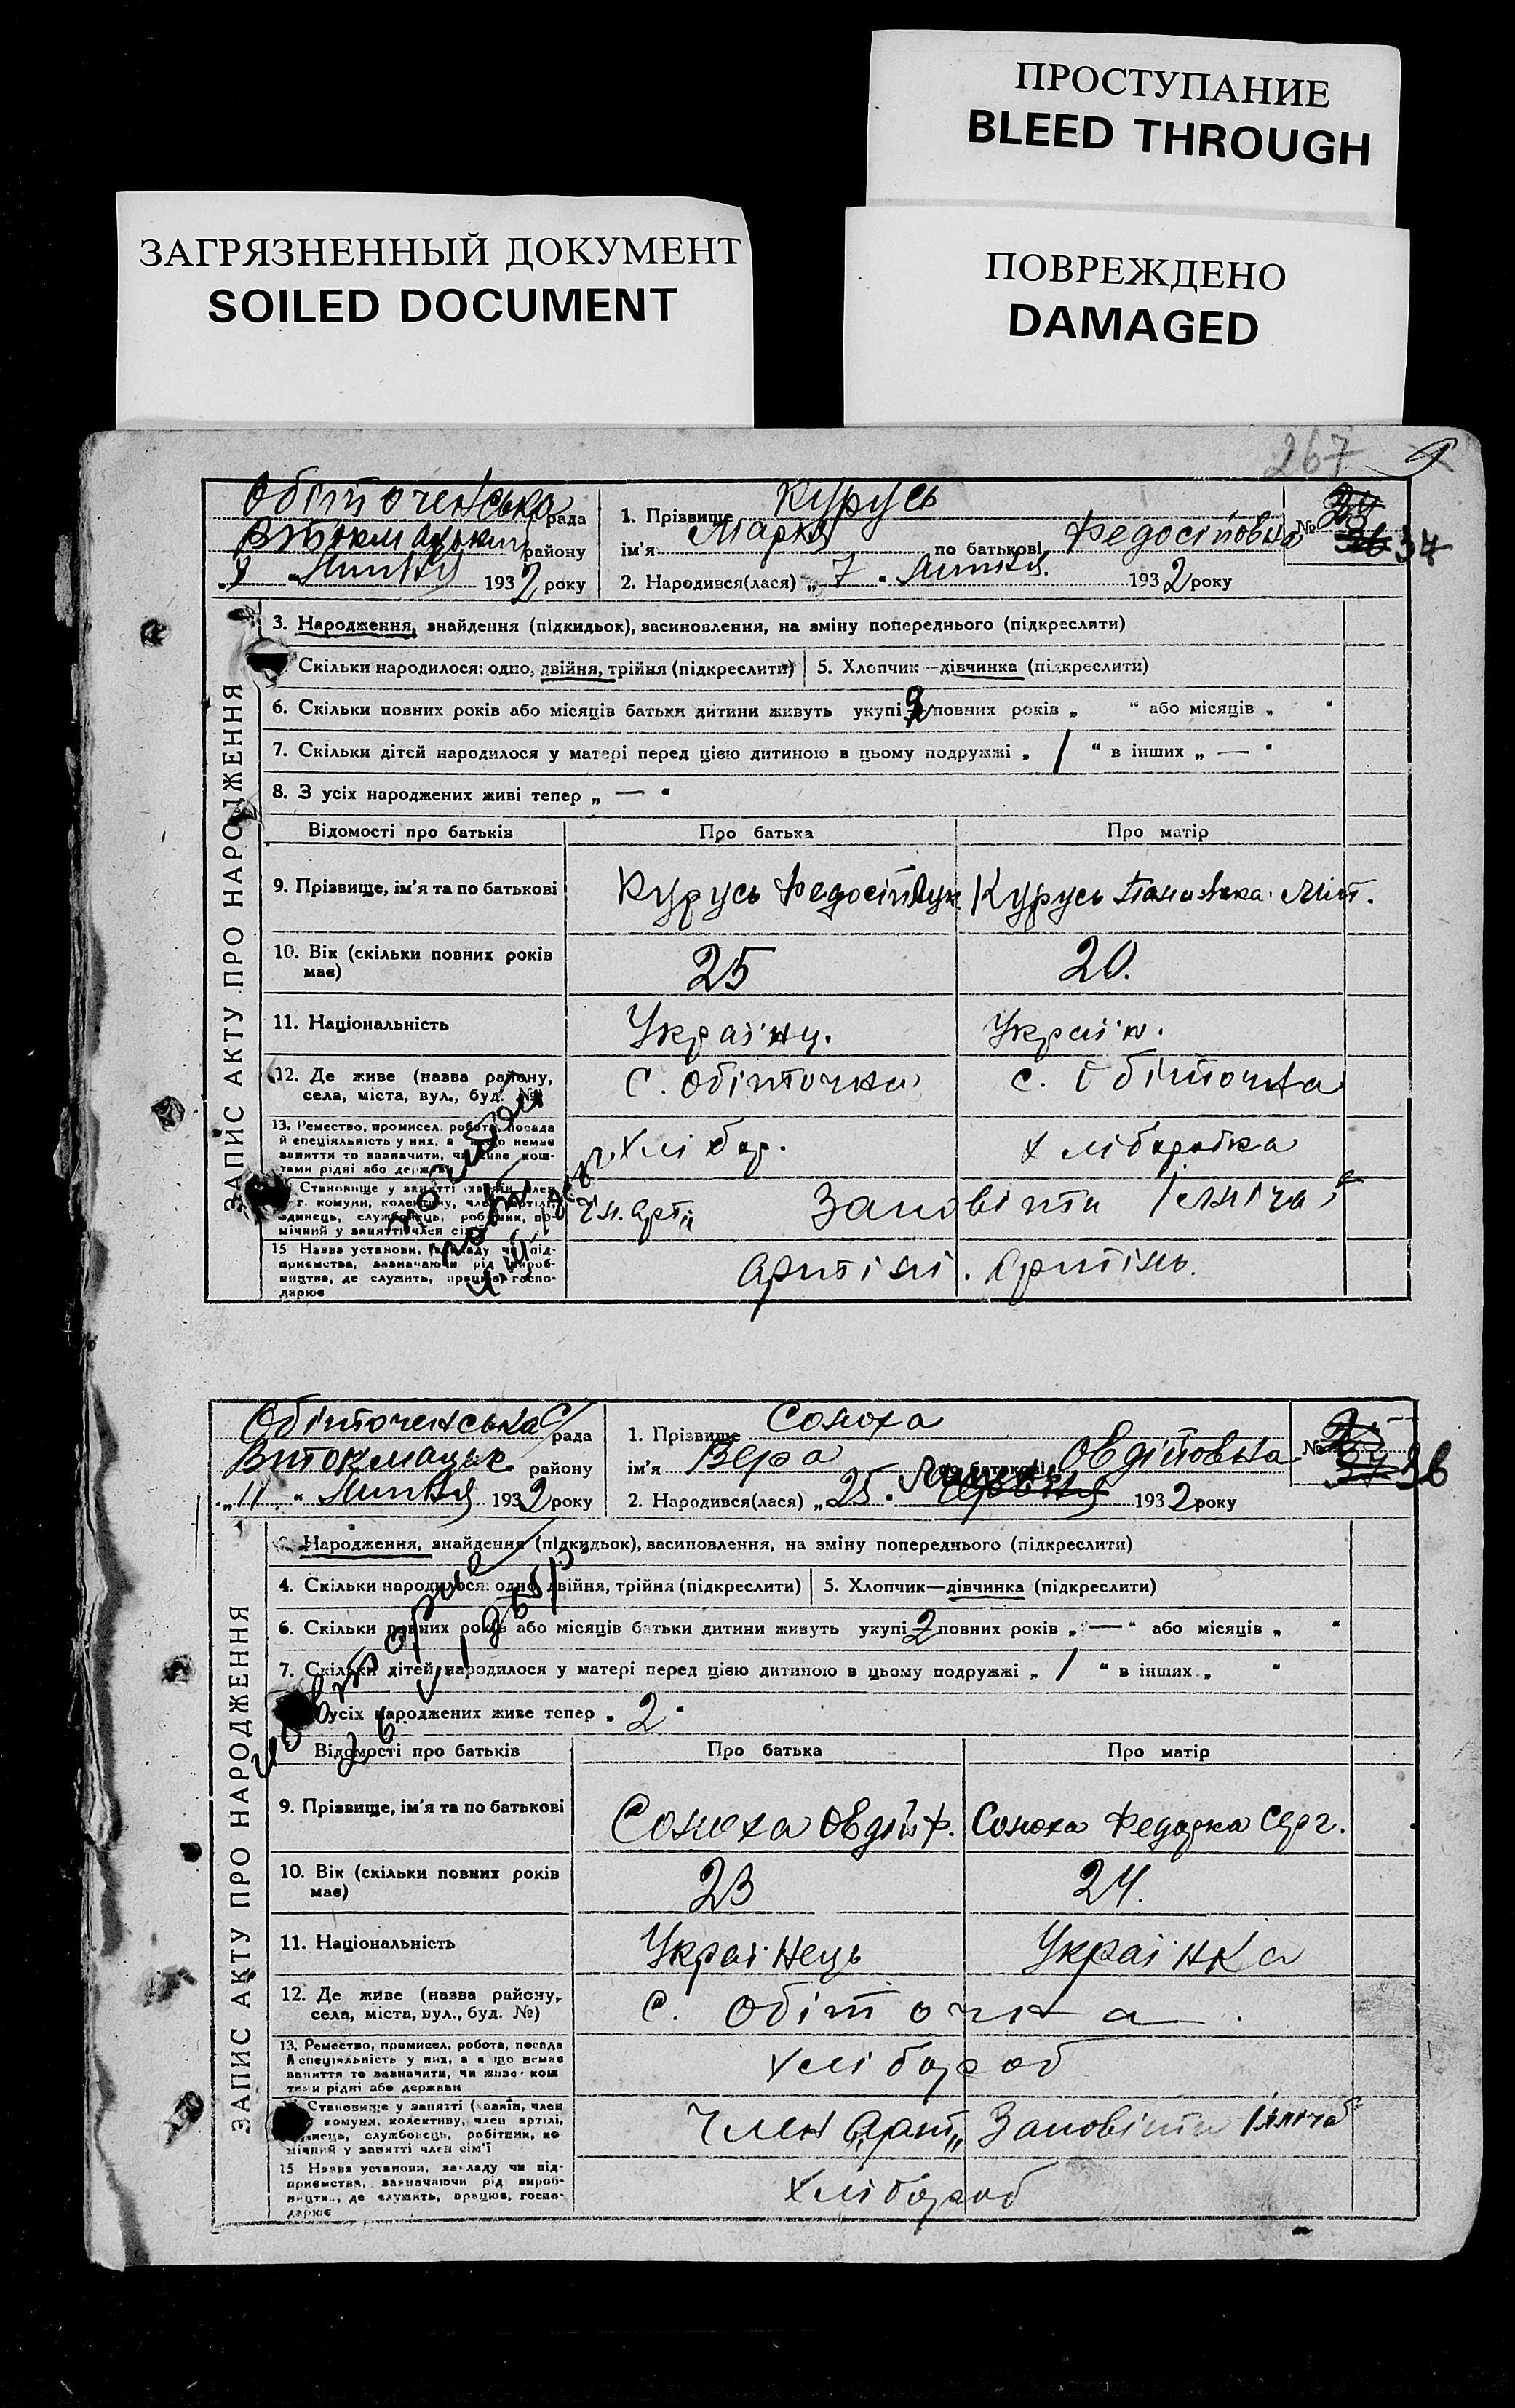 ПРОСТУПАНИЕ
BLEED THROUGH
ЗАГРЯЗНЕННЫЙ ДОКУМЕНТ
SOILED DOCUMENT
ПОВРЕЖДЕНО
DAMAGED
267
Обіточенська рада
району
"9" Липня 1932 року
1. Прізвище Курусь
ім'я Марія по батькові Федосіївна
2. Народився(лася) „7" Липня 1932 року
№ 37
ЗАПИС АКТУ ПРО НАРОДЖЕННЯ
3. Народження, знайдення (підкидьок), засиновлення, на зміну попереднього (підкреслити)
Скільки народилося: одно, двійня, трійня (підкреслити) 5. Хлопчик—дівчинка (підкреслити)
6. Скільки повних років або місяців батьки дитини живуть укупі повних років „ " або місяців „ "
7. Скільки дітей народилося у матері перед цією дитиною в цьому подружжі „ / " в інших „ — "
8. З усіх народжених живі тепер „ — "
Відомості про батьків Про батька Про матір
9. Прізвище, ім'я та по батькові Курусь Курусь
10. Вік (скільки повних років має) 25 20.
11. Національність Україн.
12. Де живе (назва району, села, міста, вул., буд. №) с. Обіточна с. Обіточна
13. Ремество, промисел, робота, посада й спеціяльність у них, а якщо немає заняття то зазначити, чи живе коштами рідні або держави хлібор. хліборобка
Становище у занятті Заповіти Ілліча
15 Назва установи, закладу чи підприємства, зазначаючи рід виробництва, де служить, працює, господарює артілі. Артіль.
Обіточенська с/рада
району
„11" Липня 1932 року
1. Прізвище Солюха
ім'я Вера по батькові Овдіївна
2. Народився(лася) „25" 1932 року
№ 36
ЗАПИС АКТУ ПРО НАРОДЖЕННЯ
Народження, знайдення (підкидьок), засиновлення, на зміну попереднього (підкреслити)
4. Скільки народилося: одно, двійня, трійня (підкреслити) 5. Хлопчик—дівчинка (підкреслити)
6. Скільки повних років або місяців батьки дитини живуть укупі 2 повних років „—" або місяців „ "
7. Скільки дітей народилося у матері перед цією дитиною в цьому подружжі „ / " в інших „ "
усіх народжених живе тепер „ 2 "
Відомості про батьків Про батька Про матір
9. Прізвище, ім'я та по батькові Солюха Овдій Ф. Солюха Федорка Серг.
10. Вік (скільки повних років має) 23 24.
11. Національність Українець Українка
12. Де живе (назва району, села, міста, вул., буд. №) с. Обіточна.
13. Ремество, промисел, робота, посада й спеціяльність у них, а якщо немає заняття то зазначити, чи живе коштами рідні або держави хлібороб
Становище у занятті (хазяїн, член комуни, колективу, член артілі, одинець, службовець, робітник, помічний у занятті член сім'ї Член „Арт„ Заповіти Ілліча"
15 Назва установи, закладу чи підприємства, зазначаючи рід виробництва, де служить, працює, господарює хлібороб